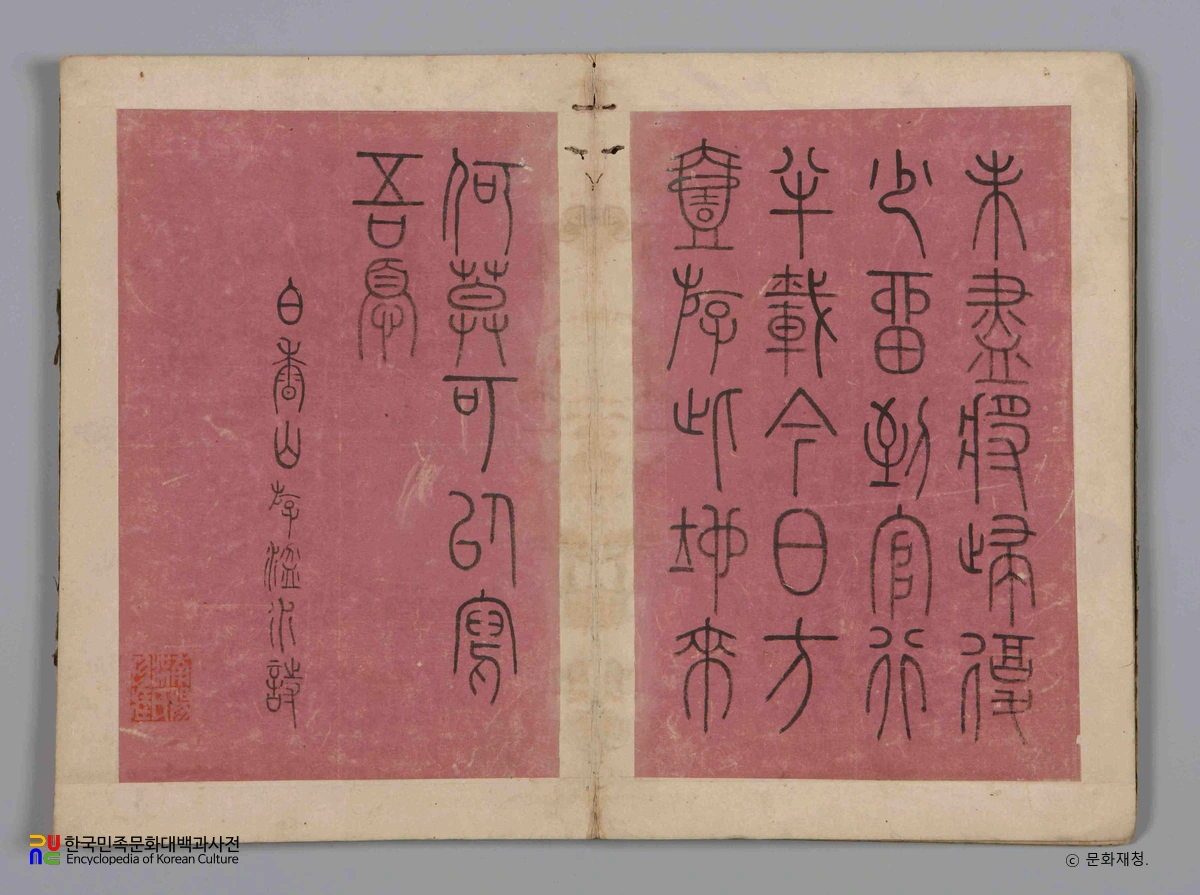 未盡將歸復
少留到官行
半載今日方
壹游此地來
何莫可以寫
吾憂
白香山游湓水詩
한국민족문화대백과사전
Encyclopedia of Korean Culture
ⓒ 문화재청.